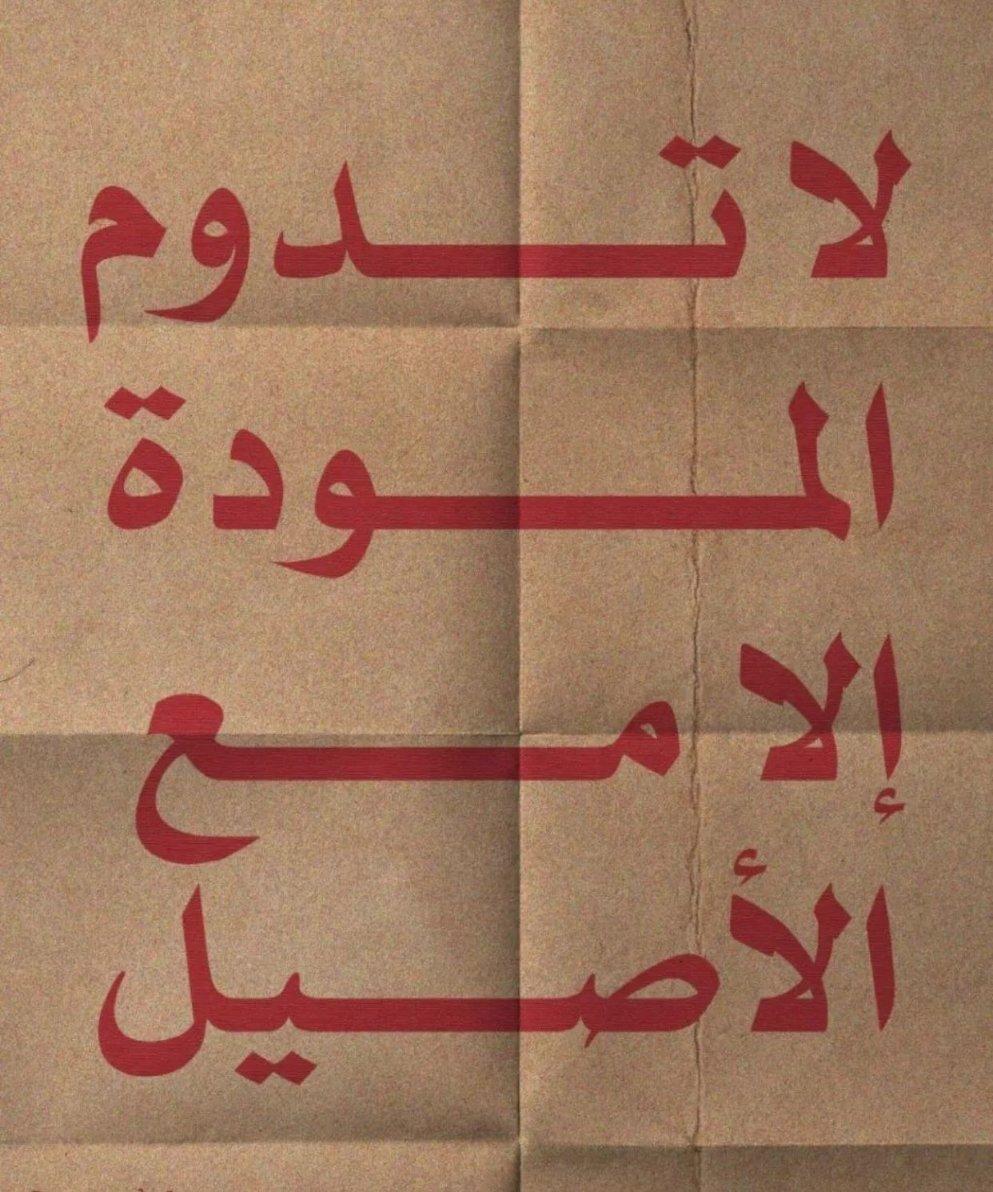 لا تدوم
المودة
إلا مع
الأصيل